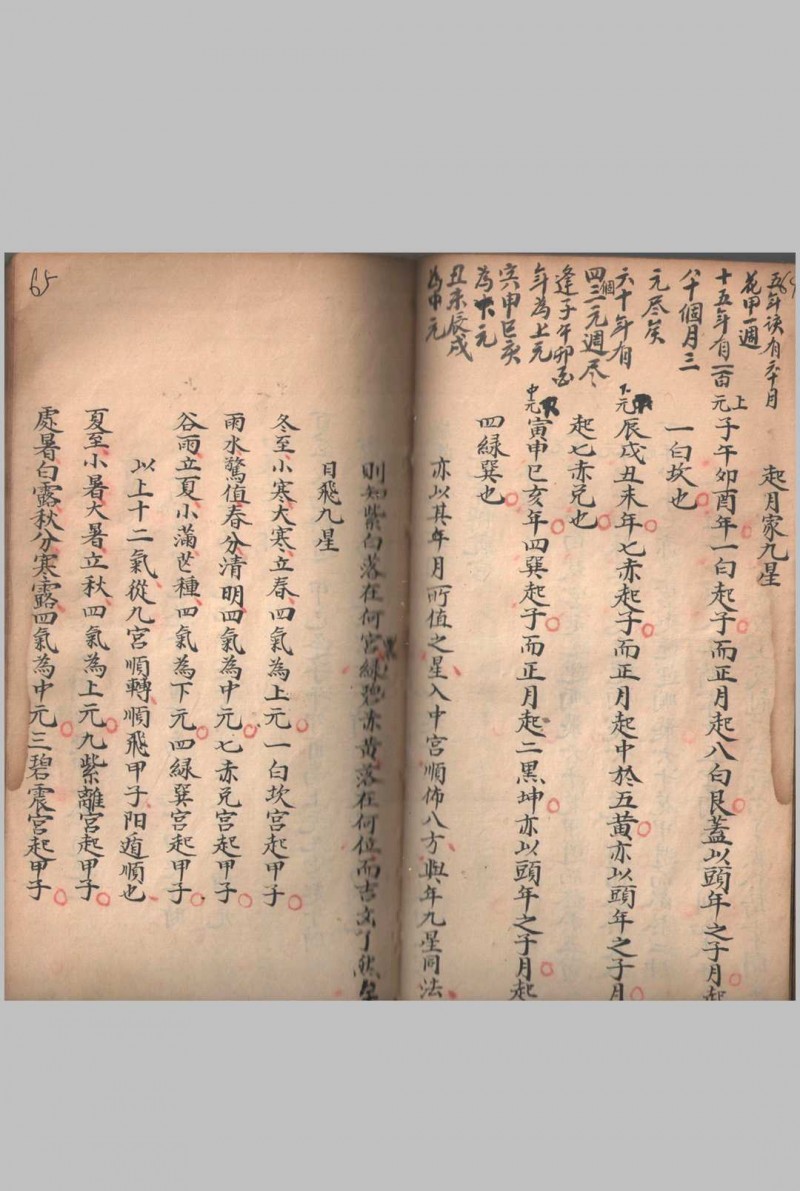 64
五年該有六十月
花甲一週
十五年有一百
八十個月三
元尽矣
六十年有
四個三元週尽
逢子午卯酉
年為上元
寅申巳亥
為下元
丑未辰戌
為中元
起月家九星
上元 子午卯酉年一白起子而正月起八白艮蓋以頭年之子月起
一白坎也
辰戌丑未年七赤起子而正月起中於五黃亦以頭年之子月
起七赤兌也
寅申巳亥年四巽起子而正月起二黑坤亦以頭年之子月起
四緑巽也
亦以其年月所值之星入中宮順佈八方與年九星同法
65
則知紫白落在何宮緑碧赤黃落在何位而吉凶了然
日飛九星
冬至小寒大寒立春四氣為上元一白坎宮起甲子
雨水驚值春分清明四氣為中元七赤兌宮起甲子
谷雨立夏小滿芒種四氣為下元四緑巽宮起甲子
以上十二氣從九宮順轉順飛甲子阳遁順也
夏至小暑大暑立秋四氣為上元九紫離宮起甲子
處暑白露秋分寒露四氣為中元三碧震宮起甲子